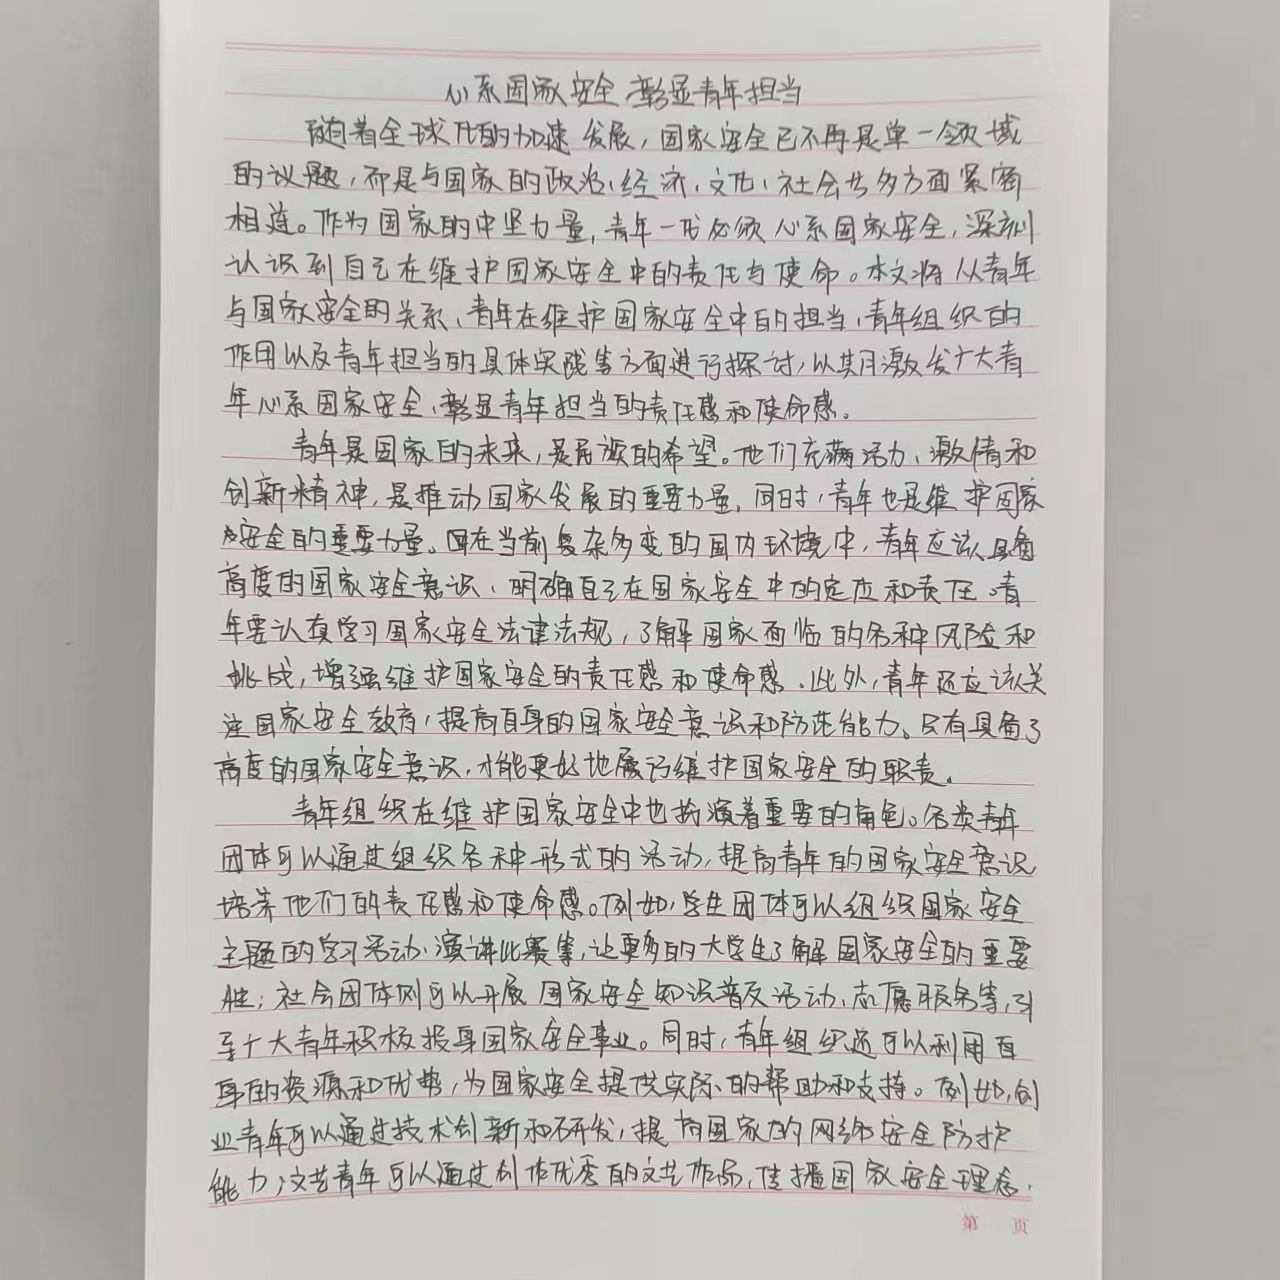 心系国家安全 彰显青年担当
随着全球化的加速发展，国家安全已不再是单一领域
的议题，而是与国家的政治、经济、文化、社会共多方面紧密
相连。作为国家的中坚力量，青年一代必须心系国家安全，深刻
认识到自己在维护国家安全中的责任与使命。本文将从青年
与国家安全的关系、青年在维护国家安全中的担当、青年组织的
作用以及青年担当的具体实践等方面进行探讨，以期激发广大青
年心系国家安全、彰显青年担当的责任感和使命感。
青年是国家的未来，是民族的希望。他们充满活力、激情和
创新精神，是推动国家发展的重要力量。同时，青年也是维护国家
安全的重要力量。在当前复杂多变的国内环境中，青年应该具备
高度的国家安全意识、明确自己在国家安全中的定位和责任。青
年要认真学习国家安全法律法规，了解国家面临的各种风险和
挑战，增强维护国家安全的责任感和使命感。此外，青年还应该关
注国家安全教育，提高自身的国家安全意识和防范能力。只有具备了
高度的国家安全意识，才能更好地履行维护国家安全的职责。
青年组织在维护国家安全中也扮演着重要的角色。各类青年
团体可以通过组织各种形式的活动，提高青年的国家安全意识，
培养他们的责任感和使命感。例如，学生团体可以组织国家安全
主题的学习活动、演讲比赛等，让更多的大学生了解国家安全的重要
性；社会团体则可以开展国家安全知识普及活动、志愿服务等，引
导广大青年积极投身国家安全事业。同时，青年组织还可以利用自
身的资源和优势，为国家安全提供实际的帮助和支持。例如，创
业青年可以通过技术创新和研发，提高国家的网络安全防护
能力；文艺青年可以通过创作优秀的文艺作品，传播国家安全理念。
第 页